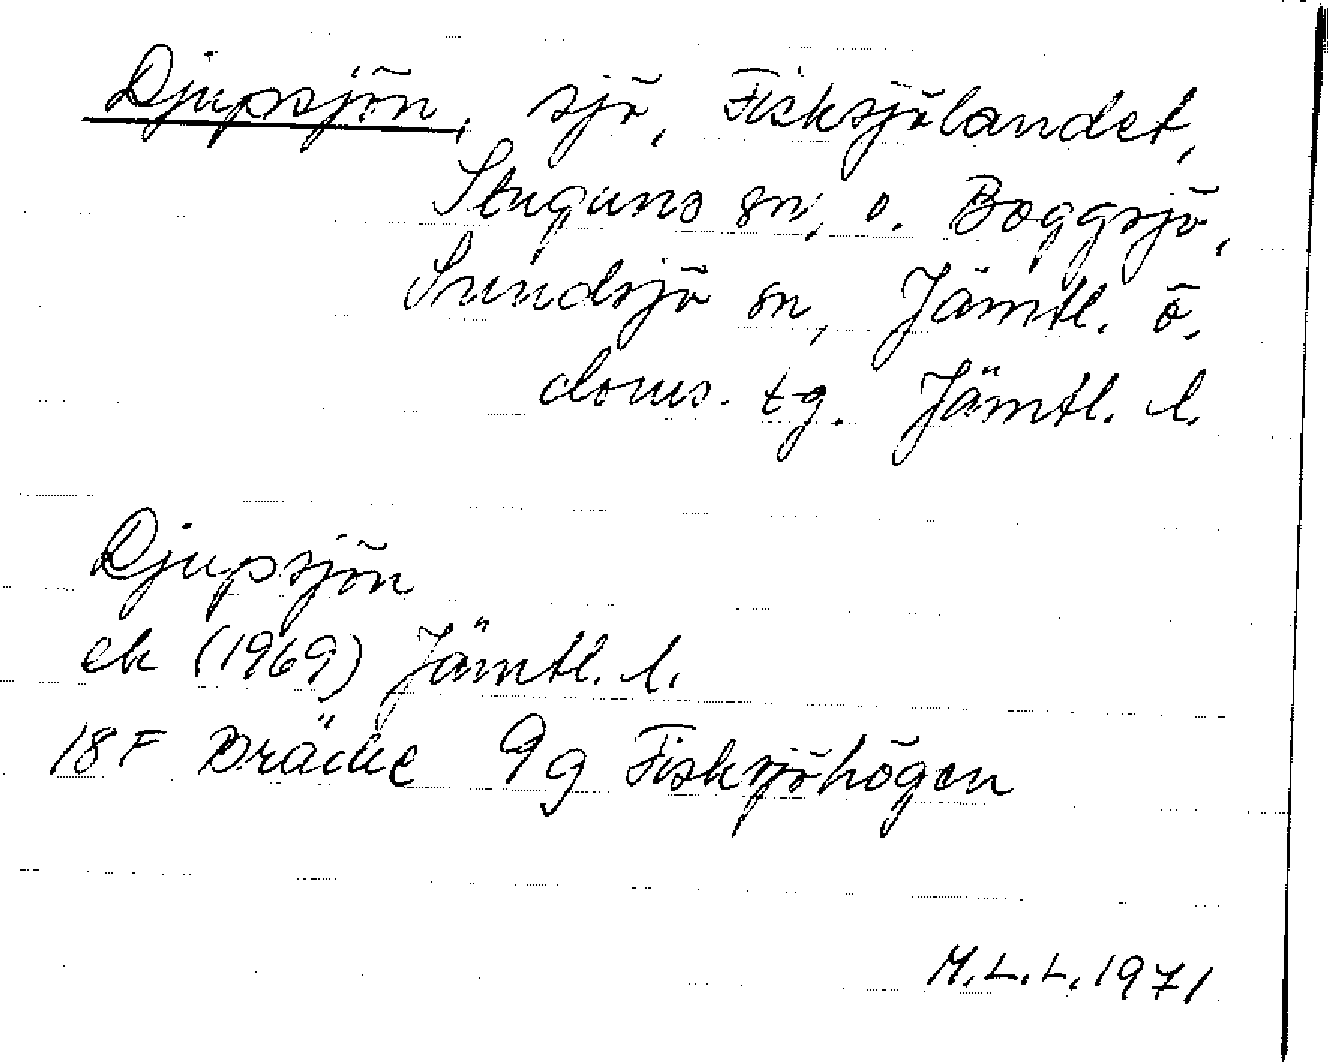 Djupsjön, sjö, Fisksjölandet,
Stuguns sn, o. Boggsjö,
Sundsjö sn, Jämtl. ö.
doms. tg. Jämtl. l.
Djupsjön
ek (1969) Jämtl. l.
18 F Bräcke 9g Fisksjöhögen
M.L.L. 1971